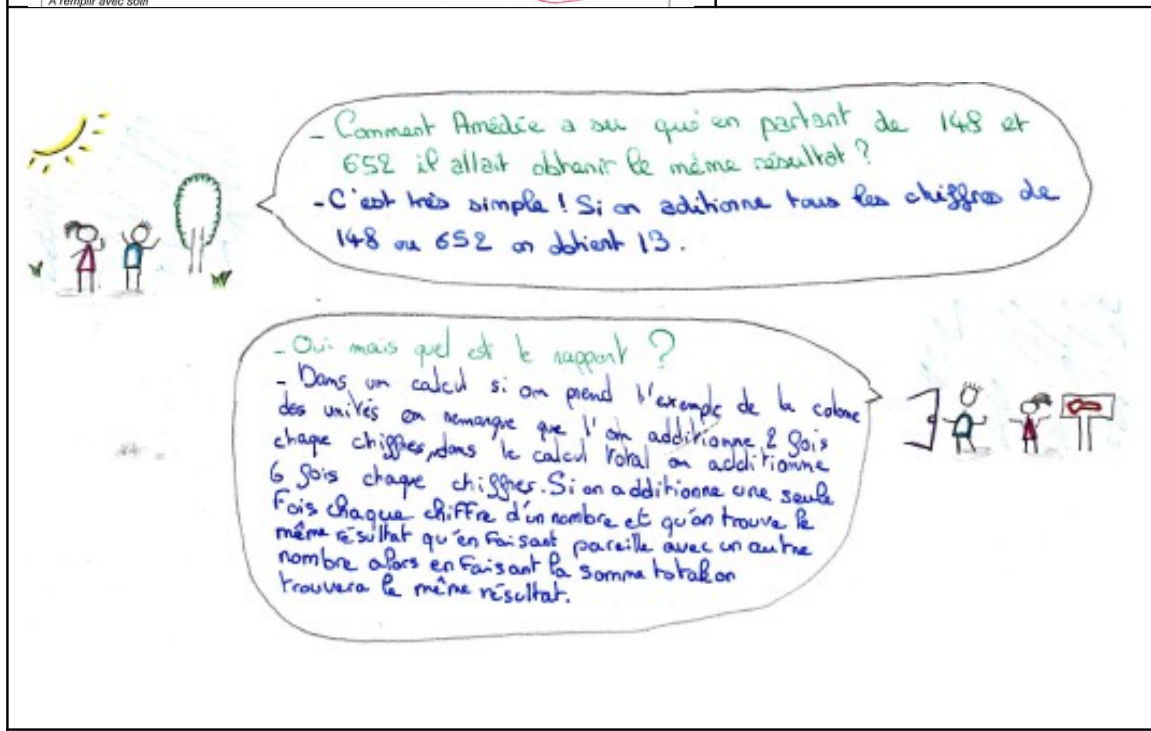 A remplir avec soin
- Comment Amédée a su qu'en partant de 148 et
652 il allait obtenir le même résultat ?
- C'est très simple ! Si on aditionne tous les chiffres de
148 ou 652 on obtient 13.
- Oui mais quel est le rapport ?
- Dans un calcul si on prend l'exemple de la colone
des unités on remarque que l'on additionne 2 fois
chaque chiffres, dans le calcul total on additionne
6 fois chaque chiffres. Si on additionne une seule
Fois chaque chiffre d'un nombre et qu'on trouve le
même résultat qu'en faisant pareille avec un autre
nombre alors en faisant la somme total on
trouvera le même résultat.